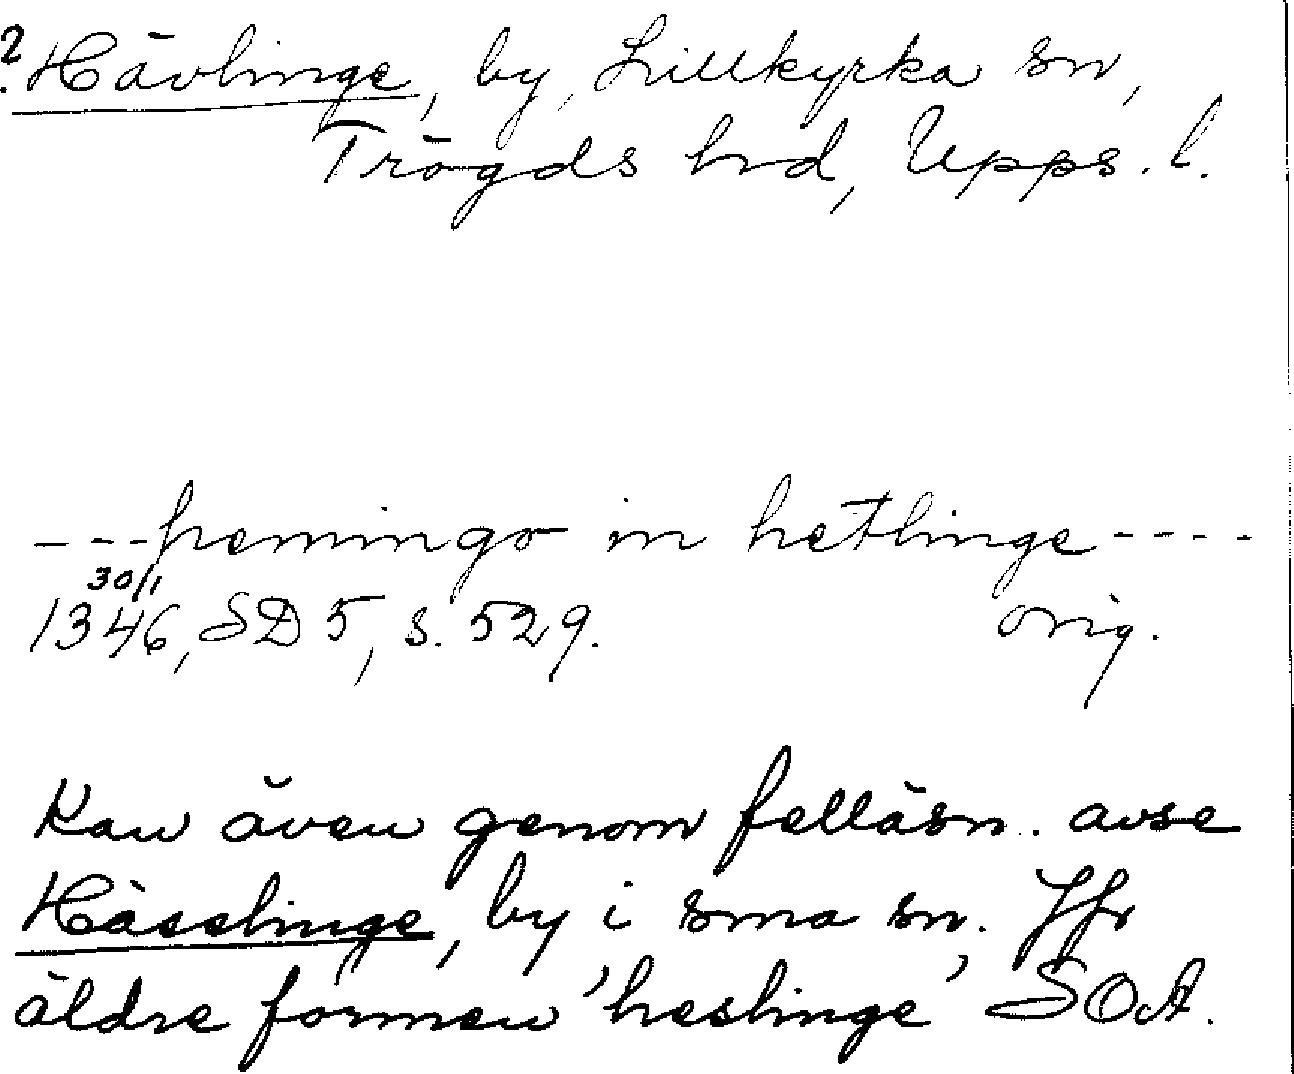 ? Hävlinge, by, Lillkyrka sn,
Trögds hd, Upps. l.
---hemingo in hetlinge----
30/1
1346, SD 5, s. 529. orig.
Kan även genom felläsn. avse
Hässlinge, by i sma sn. Jfr
äldre formen 'heslinge', SOA.